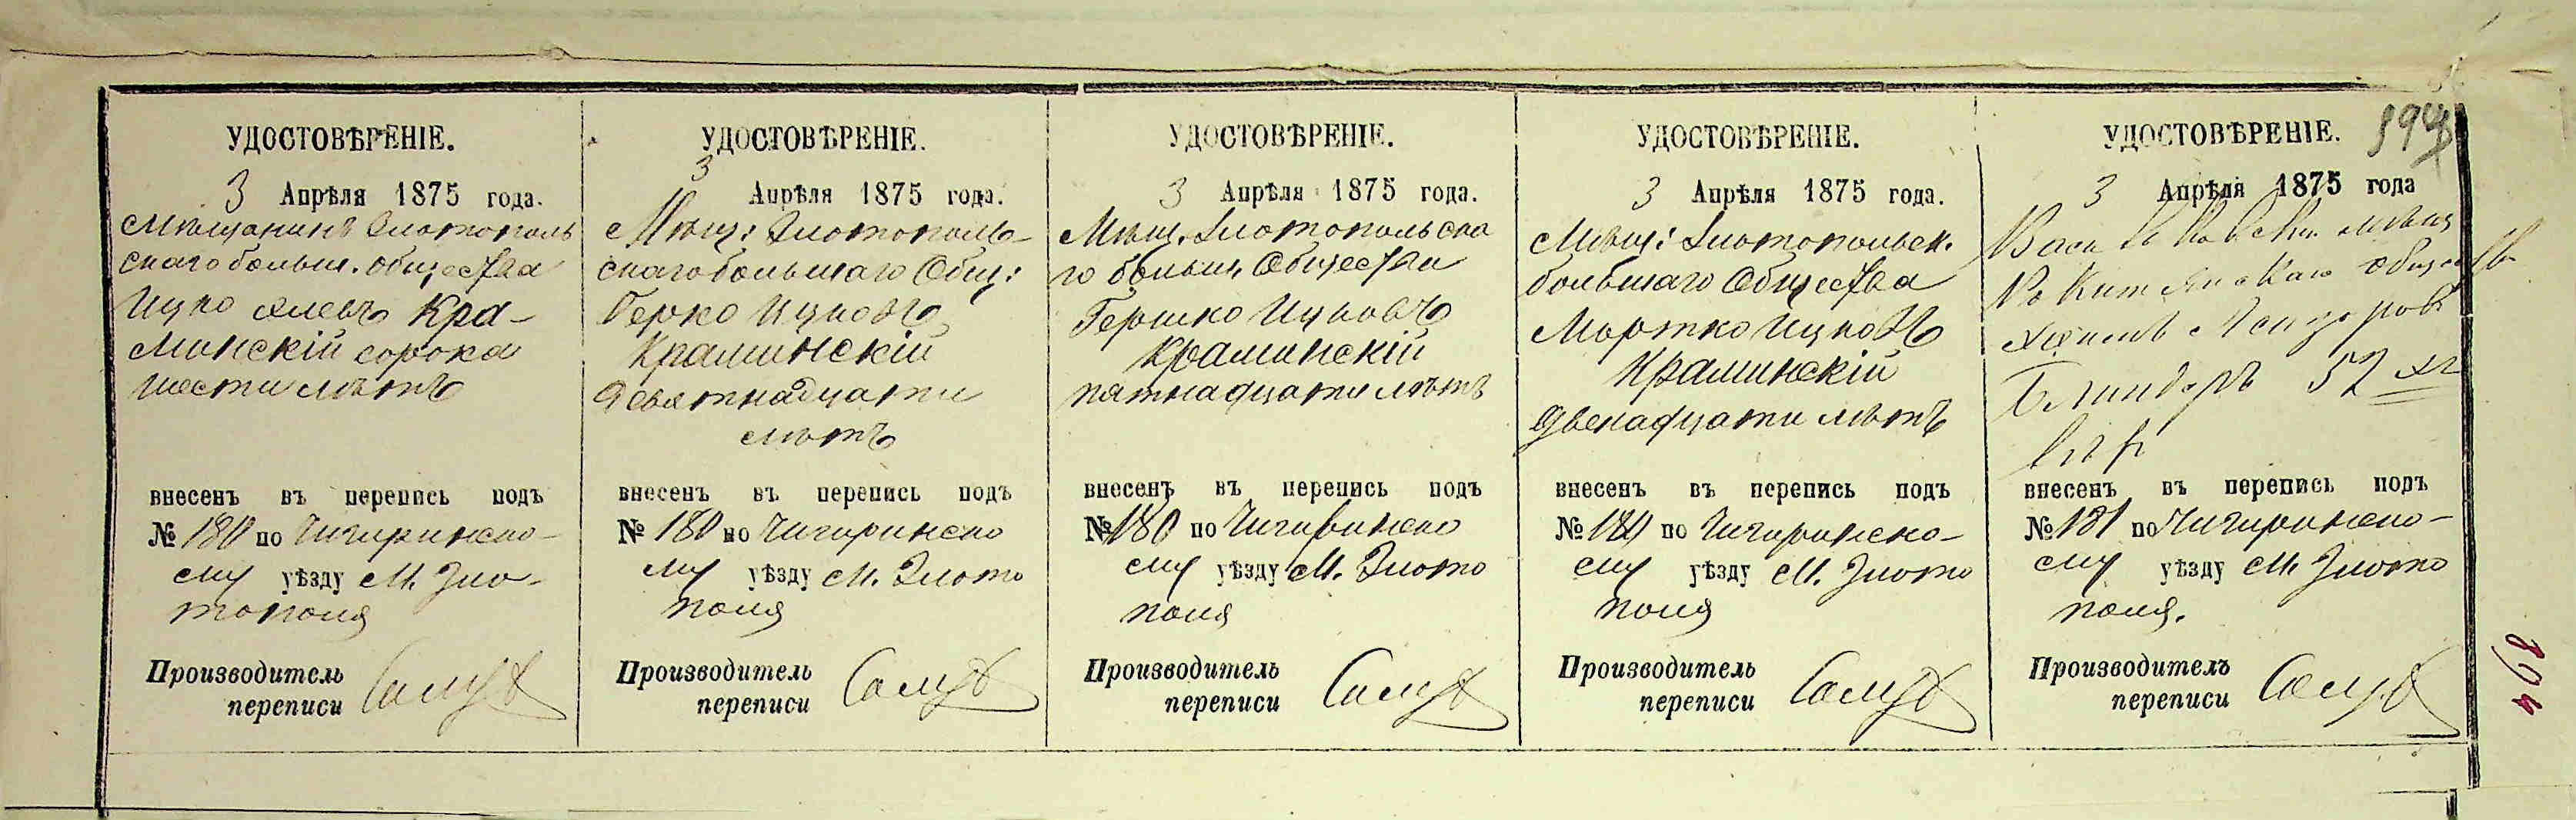 УДОСТОВѢРЕНІЕ.
3 Апрѣля 1875 года.
Мѣщанинъ Златополь
скаго больш. общества
Ицко Хлевъ Кра-
минскій сорока
шести лѣтъ
внесенъ въ перепись подъ
№ 180 по Чигиринско-
му уѣзду М. Зло-
тополя
Производитель
переписи
УДОСТОВѢРЕНІЕ.
3 Апрѣля 1875 года.
Мѣщ: Златополь-
скаго большаго Общ:
Берко Ицковъ
Краминскій
девятнадцати
лѣтъ
внесенъ въ перепись подъ
№ 180 по Чигиринско
му уѣзду М. Злото
поля
Производитель
переписи
УДОСТОВѢРЕНІЕ.
3 Апрѣля 1875 года.
Мѣщ. Златопольска
го больш. Общества
Гершко Ицковъ
Краминскій
пятнадцати лѣтъ
внесенъ въ перепись подъ
№ 180 по Чигиринско
му уѣзду М. Злото
поля
Производитель
переписи
УДОСТОВѢРЕНІЕ.
3 Апрѣля 1875 года.
Мѣщ: Златопольск.
большаго Общества
Мортко Ицковъ
Краминскій
двенадцати лѣтъ
внесенъ въ перепись подъ
№ 180 по Чигиринско-
му уѣзду М. Злото
поля
Производитель
переписи
УДОСТОВѢРЕНІЕ.
3 Апрѣля 1875 года
мѣщ
общества
52
внесенъ въ перепись подъ
№ 181 по Чигиринско-
му уѣзду М. Злото
поля.
Производитель
переписи
894